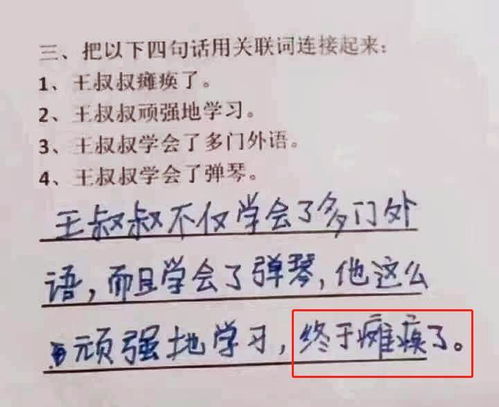 三、把以下四句话用关联词连接起来：
1、王叔叔瘫痪了。
2、王叔叔顽强地学习。
3、王叔叔学会了多门外语。
4、王叔叔学会了弹琴。
王叔叔不仅学会了多门外
语，而且学会了弹琴，他这么
顽强地学习，终于瘫痪了。